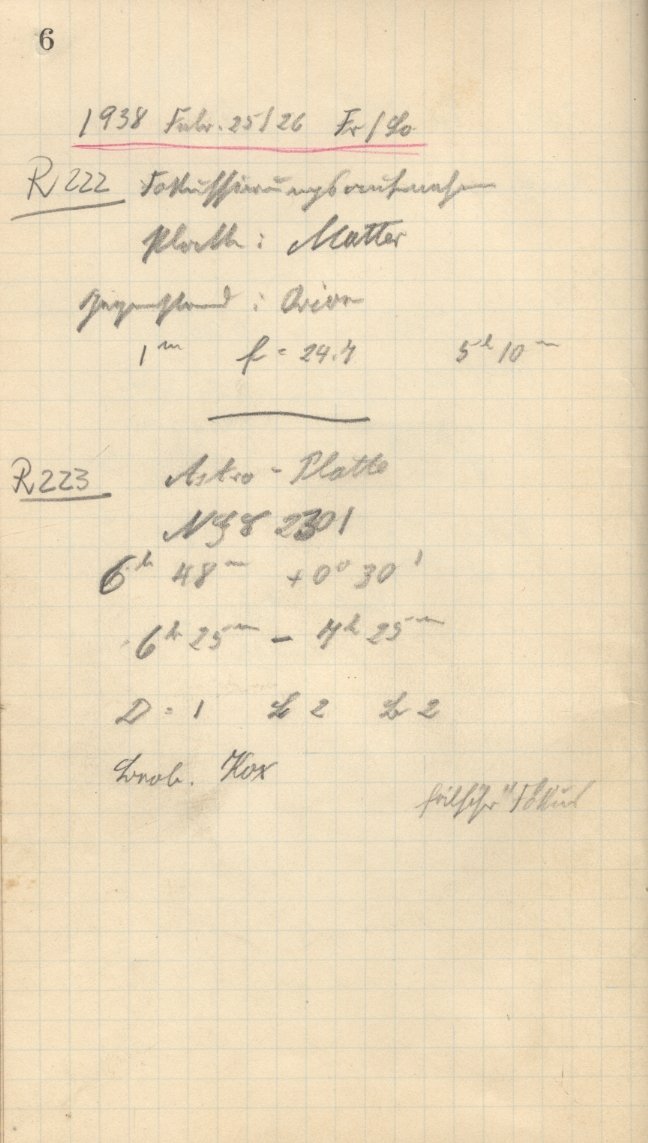 6
1938 Febr. 25/26 Fr/So
R222 Fokussierungsaufnahm
Platte: Matter
Gegenstand: Orion
1ᵐ f = 24.4 5ʰ10ᵐ
R223 Astro-Platte
NGC 2301
6ʰ 48ᵐ +0° 30'
6ʰ 25ᵐ – 7ʰ 25ᵐ
D = 1 L 2
Beob. Kox
falscher Fokus